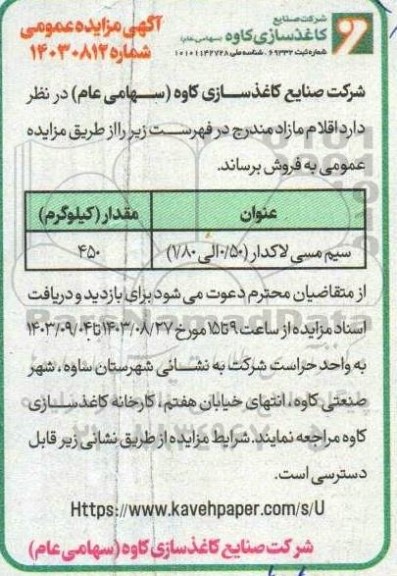 شرکت صنایع
کاغذسازی کاوه (سهامی عام)
شماره ثبت ۶۹۳۳۲ . شناسه ملی ۱۰۱۰۱۱۴۲۷۲۸
آگهی مزایده عمومی
شماره ۱۴۰۳۰۸۱۲
شرکت صنایع کاغذسازی کاوه (سهامی عام) در نظر
دارد اقلام مازاد مندرج در فهرست زیر را از طریق مزایده
عمومی به فروش برساند.
عنوان مقدار (کیلوگرم)
سیم مسی لاکدار (۰/۵۰ الی ۱/۸۰) ۴۵۰
از متقاضیان محترم دعوت می شود برای بازدید و دریافت
اسناد مزایده از ساعت ۹ تا ۱۵ مورخ ۱۴۰۳/۰۸/۲۷ تا ۱۴۰۳/۰۹/۰۴
به واحد حراست شرکت به نشانی شهرستان ساوه، شهر
صنعتی کاوه، انتهای خیابان هفتم، کارخانه کاغذسازی
کاوه مراجعه نمایند. شرایط مزایده از طریق نشانی زیر قابل
دسترسی است.
Https://www.kavehpaper.com/s/U
شرکت صنایع کاغذسازی کاوه (سهامی عام)
ParsNamadData